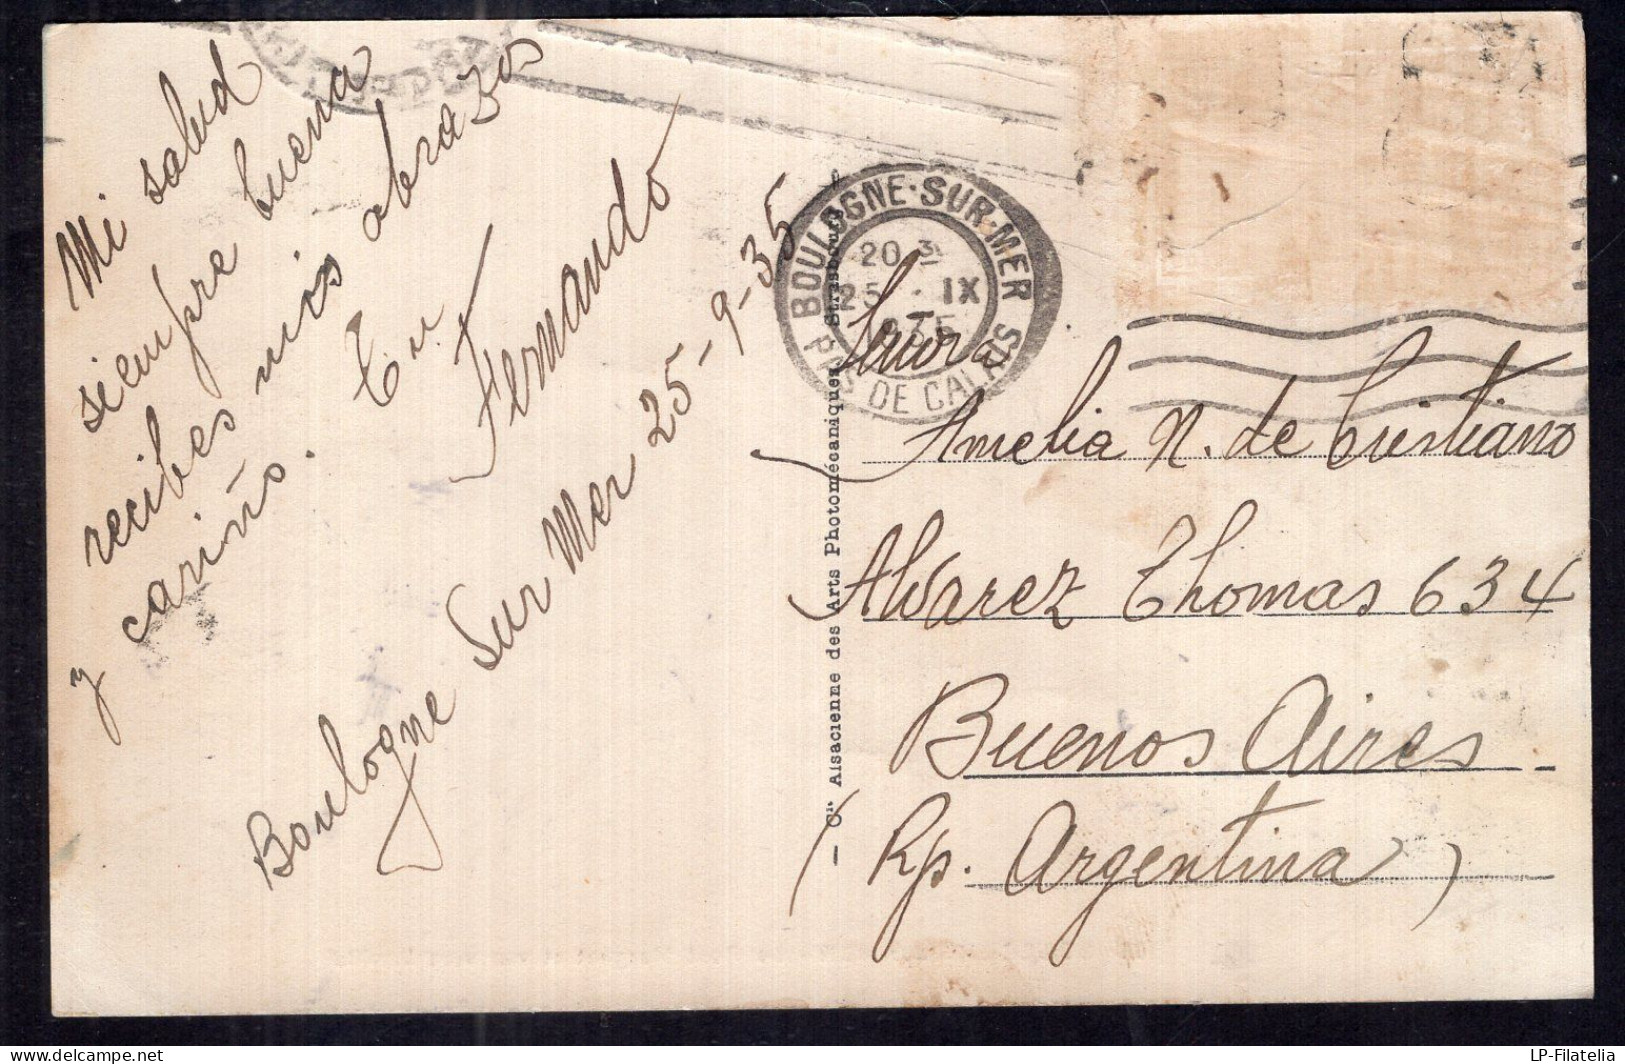 Mi salud
siempre buena
recibes mis abrazos
y cariño. Tu
Fernando
Boulogne Sur Mer 25-9-35
BOULOGNE-SUR-MER
20
25 IX
1935
PAS DE CALAIS
Cie Alsacienne des Arts Photomécaniques, Strasbourg
Amelia N. de Cristiano
Alvarez Thomas 634
Buenos Aires
(Rp. Argentina)
LP-Filatelia
delcampe.net